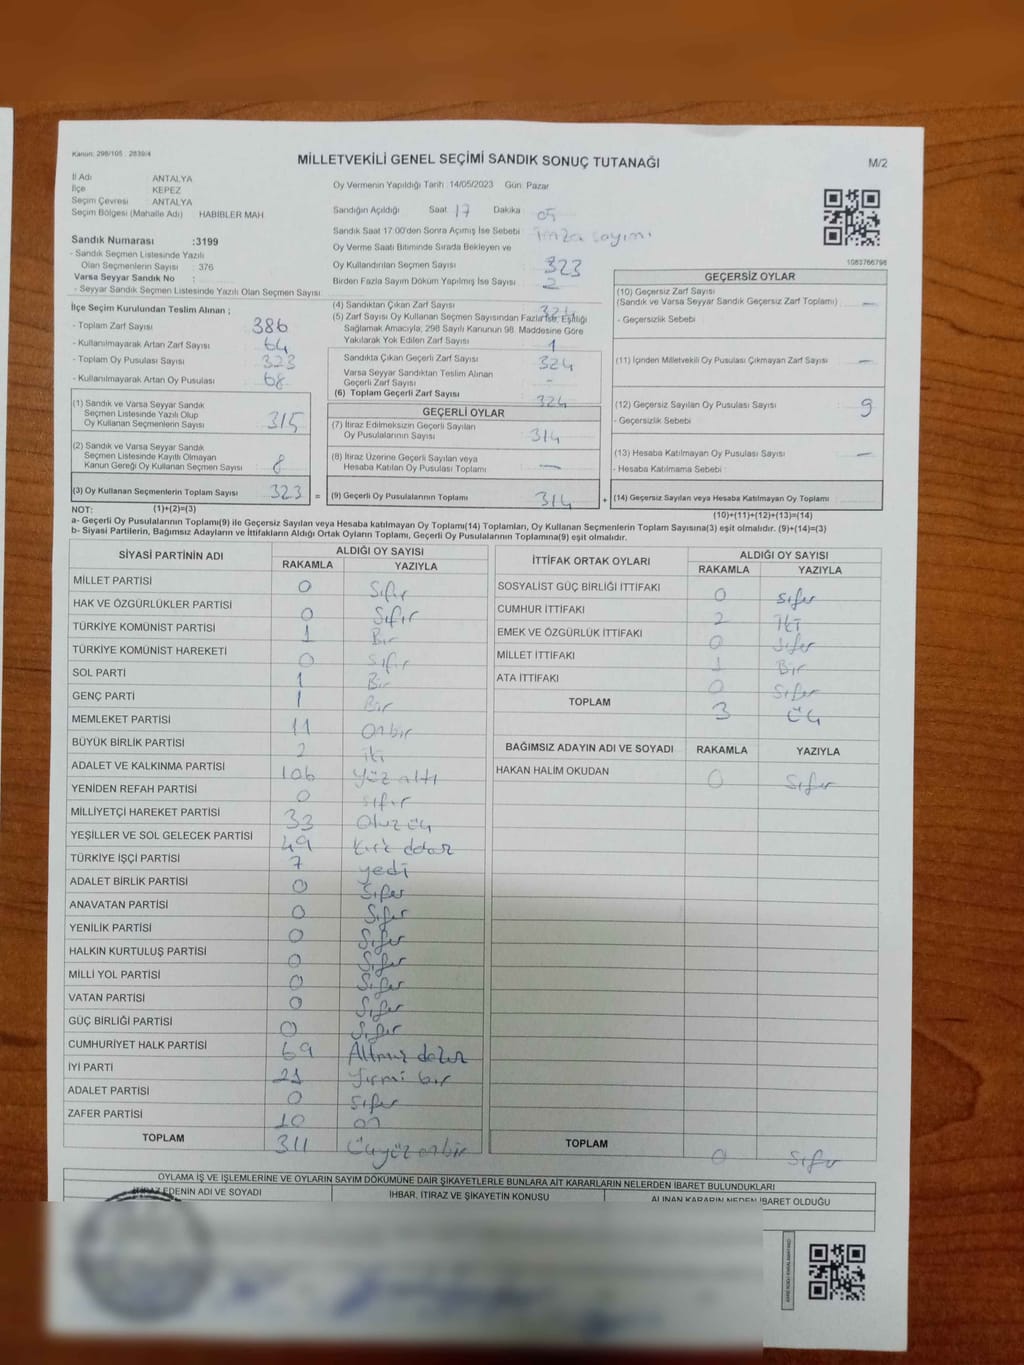 Kanun: 298/105 : 2839/4
MİLLETVEKİLİ GENEL SEÇİMİ SANDIK SONUÇ TUTANAĞI
M/2
İl Adı ANTALYA
İlçe KEPEZ
Seçim Çevresi ANTALYA
Seçim Bölgesi (Mahalle Adı) HABİBLER MAH
Oy Vermenin Yapıldığı Tarih :14/05/2023 Gün: Pazar
Sandığın Açıldığı Saat 17 Dakika 05
Sandık Saat 17.00'den Sonra Açılmış İse Sebebi imza sayımı
Oy Verme Saati Bitiminde Sırada Bekleyen ve
Oy Kullandırılan Seçmen Sayısı 323
Birden Fazla Sayım Döküm Yapılmış İse Sayısı 2
1083766798
Sandık Numarası :3199
- Sandık Seçmen Listesinde Yazılı
Olan Seçmenlerin Sayısı : 376
Varsa Seyyar Sandık No :
- Seyyar Sandık Seçmen Listesinde Yazılı Olan Seçmen Sayısı:
İlçe Seçim Kurulundan Teslim Alınan ;
- Toplam Zarf Sayısı 386
- Kullanılmayarak Artan Zarf Sayısı 64
- Toplam Oy Pusulası Sayısı 323
- Kullanılmayarak Artan Oy Pusulası 68
(1) Sandık ve Varsa Seyyar Sandık
Seçmen Listesinde Yazılı Olup
Oy Kullanan Seçmenlerin Sayısı 315
(2) Sandık ve Varsa Seyyar Sandık
Seçmen Listesinde Kayıtlı Olmayan
Kanun Gereği Oy Kullanan Seçmen Sayısı 8
(3) Oy Kullanan Seçmenlerin Toplam Sayısı 323 =
(4) Sandıktan Çıkan Zarf Sayısı
(5) Zarf Sayısı Oy Kullanan Seçmen Sayısından Fazla İse, Eşitliği
Sağlamak Amacıyla, 298 Sayılı Kanunun 98. Maddesine Göre
Yakılarak Yok Edilen Zarf Sayısı 1
Sandıkta Çıkan Geçerli Zarf Sayısı 324
Varsa Seyyar Sandıktan Teslim Alınan
Geçerli Zarf Sayısı -
(6) Toplam Geçerli Zarf Sayısı 324
GEÇERLİ OYLAR
(7) İtiraz Edilmeksizin Geçerli Sayılan
Oy Pusulalarının Sayısı 314
(8) İtiraz Üzerine Geçerli Sayılan veya
Hesaba Katılan Oy Pusulası Toplamı —
(9) Geçerli Oy Pusulalarının Toplamı 314 +
GEÇERSİZ OYLAR
(10) Geçersiz Zarf Sayısı
(Sandık ve Varsa Seyyar Sandık Geçersiz Zarf Toplamı) —
- Geçersizlik Sebebi
(11) İçinden Milletvekili Oy Pusulası Çıkmayan Zarf Sayısı —
(12) Geçersiz Sayılan Oy Pusulası Sayısı 9
- Geçersizlik Sebebi
(13) Hesaba Katılmayan Oy Pusulası Sayısı —
- Hesaba Katılmama Sebebi
(14) Geçersiz Sayılan veya Hesaba Katılmayan Oy Pusulası Toplamı
NOT: (1)+(2)=(3) (10)+(11)+(12)+(13)=(14)
a- Geçerli Oy Pusulalarının Toplamı(9) ile Geçersiz Sayılan veya Hesaba katılmayan Oy Toplamı(14) Toplamları, Oy Kullanan Seçmenlerin Toplam Sayısına(3) eşit olmalıdır. (9)+(14)=(3)
b- Siyasi Partilerin, Bağımsız Adayların ve İttifakların Aldığı Ortak Oyların Toplamı, Geçerli Oy Pusulalarının Toplamına(9) eşit olmalıdır.
SİYASİ PARTİNİN ADI ALDIĞI OY SAYISI
RAKAMLA YAZIYLA
MİLLET PARTİSİ 0 Sıfır
HAK VE ÖZGÜRLÜKLER PARTİSİ 0 Sıfır
TÜRKİYE KOMÜNİST PARTİSİ 1 Bir
TÜRKİYE KOMÜNİST HAREKETİ 0 Sıfır
SOL PARTİ 1 Bir
GENÇ PARTİ 1 Bir
MEMLEKET PARTİSİ 11 Onbir
BÜYÜK BİRLİK PARTİSİ 2 iki
ADALET VE KALKINMA PARTİSİ 106 yüz altı
YENİDEN REFAH PARTİSİ 0 sıfır
MİLLİYETÇİ HAREKET PARTİSİ 33 Otuz üç
YEŞİLLER VE SOL GELECEK PARTİSİ 49
TÜRKİYE İŞÇİ PARTİSİ 7 yedi
ADALET BİRLİK PARTİSİ 0 Sıfır
ANAVATAN PARTİSİ 0 Sıfır
YENİLİK PARTİSİ 0 Sıfır
HALKIN KURTULUŞ PARTİSİ 0 Sıfır
MİLLİ YOL PARTİSİ 0 Sıfır
VATAN PARTİSİ 0 Sıfır
GÜÇ BİRLİĞİ PARTİSİ 0 Sıfır
CUMHURİYET HALK PARTİSİ 69 Altmış dokuz
İYİ PARTİ 21 Yirmi bir
ADALET PARTİSİ 0 Sıfır
ZAFER PARTİSİ 10 on
TOPLAM 311 Üçyüz onbir
İTTİFAK ORTAK OYLARI ALDIĞI OY SAYISI
RAKAMLA YAZIYLA
SOSYALİST GÜÇ BİRLİĞİ İTTİFAKI 0 Sıfır
CUMHUR İTTİFAKI 2 İki
EMEK VE ÖZGÜRLÜK İTTİFAKI 0 Sıfır
MİLLET İTTİFAKI 1 Bir
ATA İTTİFAKI 0 Sıfır
TOPLAM 3 Üç
BAĞIMSIZ ADAYIN ADI VE SOYADI RAKAMLA YAZIYLA
HAKAN HALİM OKUDAN 0 Sıfır
TOPLAM 0 Sıfır
OYLAMA İŞ VE İŞLEMLERİNE VE OYLARIN SAYIM DÖKÜMÜNE DAİR ŞİKAYETLERLE BUNLARA AİT KARARLARIN NELERDEN İBARET BULUNDUKLARI
İTİRAZ EDENİN ADI VE SOYADI İHBAR, İTİRAZ VE ŞİKAYETİN KONUSU ALINAN KARARIN NEDEN İBARET OLDUĞU